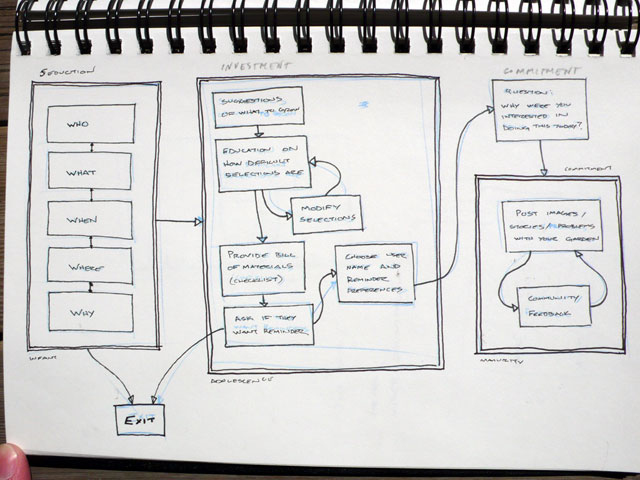 SEDUCTION
WHO
WHAT
WHEN
WHERE
WHY
INFANT
EXIT
INVESTMENT
SUGGESTIONS
OF WHAT TO GROW
EDUCATION ON
HOW DIFFICULT
SELECTIONS ARE
MODIFY
SELECTIONS
PROVIDE BILL
OF MATERIALS
(CHECKLIST)
ASK IF THEY
WANT REMINDER
CHOOSE USER
NAME AND
REMINDER
PREFERENCES
ADOLESCENCE
COMMITMENT
QUESTION:
WHY WERE YOU
INTERESTED IN
DOING THIS TODAY?
COMMITMENT
POST IMAGES/
STORIES/PROBLEMS
WITH YOUR GARDEN
COMMUNITY
FEEDBACK
MATURITY